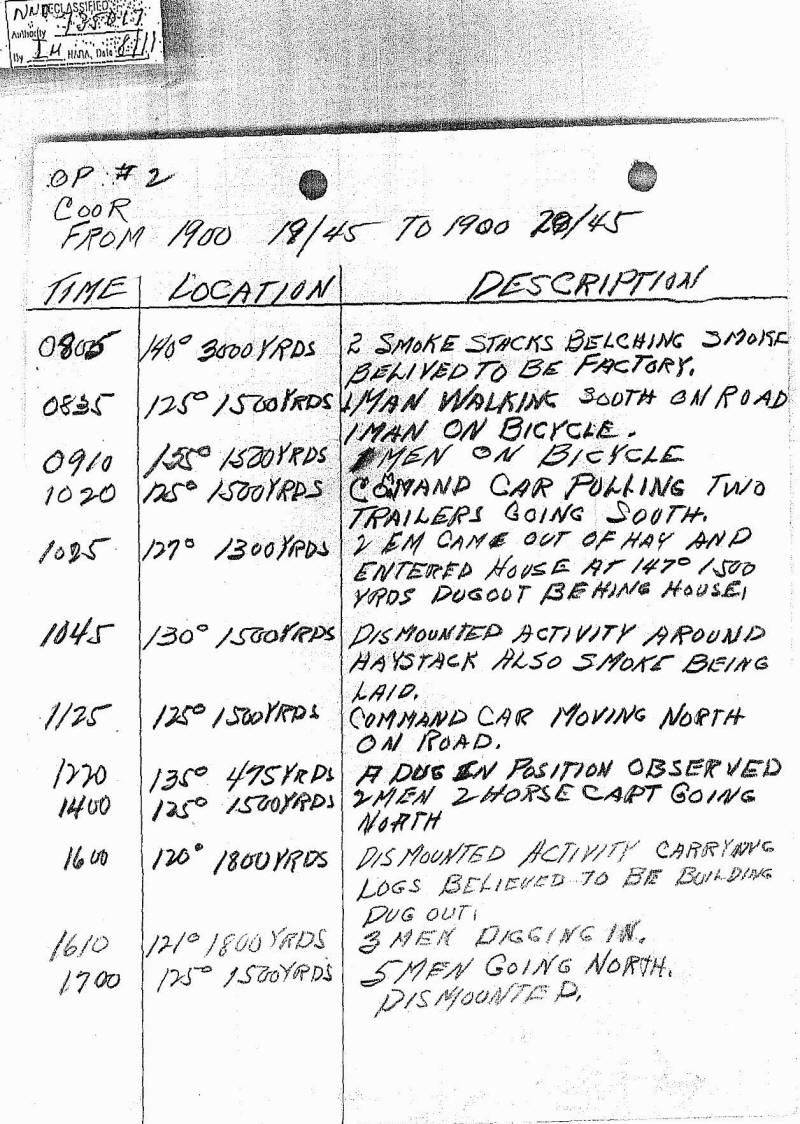 DECLASSIFIED
NND 735017
Authority
By IH NARA, Date 8/11
OP # 2
COOR
FROM 1900 19/45 TO 1900 20/45
TIME LOCATION DESCRIPTION
0805 140° 3000 YRDS 2 SMOKE STACKS BELCHING SMOKE
BELIVED TO BE FACTORY.
0835 125° 1500 YRDS 1 MAN WALKING SOUTH ON ROAD
1 MAN ON BICYCLE.
0910 155° 1500 YRDS MEN ON BICYCLE
1020 125° 1500 YRDS COMAND CAR PULLING TWO
TRAILERS GOING SOUTH.
1025 127° 1300 YRDS 2 EM CAME OUT OF HAY AND
ENTERED HOUSE AT 147° 1500
YRDS DUGOUT BEHING HOUSE,
1045 130° 1500 YRDS DISMOUNTED ACTIVITY AROUND
HAYSTACK ALSO SMOKE BEING
LAID.
1125 125° 1500 YRDS COMMAND CAR MOVING NORTH
ON ROAD.
1220 135° 475 YRDS A DUG IN POSITION OBSERVED
1400 125° 1500 YRDS 2 MEN 2 HORSE CAPT GOING
NORTH
1600 120° 1800 YRDS DISMOUNTED ACTIVITY CARRYNVG
LOGS BELIEVED TO BE BUILDING
DUG OUT,
1610 121° 1800 YRDS 3 MEN DIGGING IN.
1700 125° 1500 YRDS 5 MEN GOING NORTH.
DISMOUNTED.